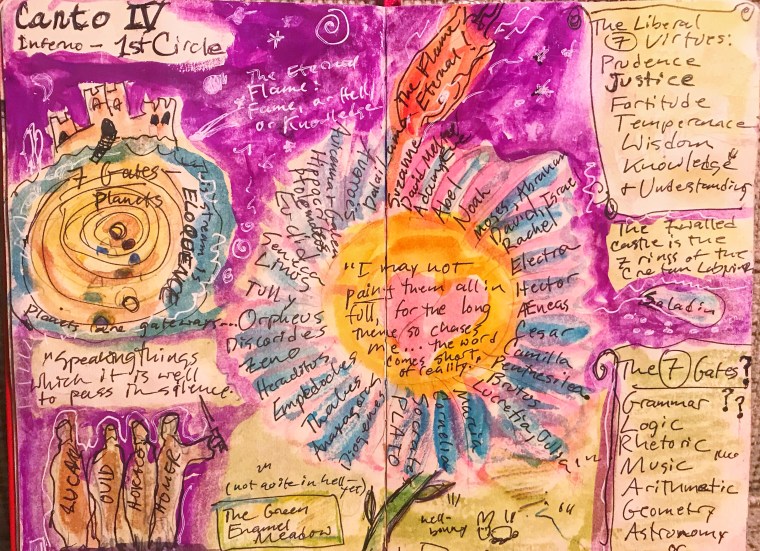 Canto IV
Inferno – 1st Circle
The Eternal
Flame:
Fame, or Hell
or Knowledge
7 Gates –
Planets
ELOQUENCE
Stream!
Planets are gateways...
"Speaking things
which it is well
to pass in silence."
LUCAN
OVID
HORACE
HOMER
(not quite in hell –
yet)
The Green
Enamel
Meadow
The Flame
Eternal!
Suzanne
Adam
Abel
Noah
Moses, Abraham
David, Israel
Rachel
Electra
Hector
AEneas
Cesar
Camilla
Penthesilea
Brutus
Lucretia, Julia
Marcia
Cornelia
Socrates
PLATO
Diogenes
Anaxagoras
Thales
Empedocles
Heraclitus
Zeno
Dioscorides
Orpheus
Tully
Linus
Seneca
Euclid
Ptolemaeus
Hippocrates
Avicenna + Galen
Averroes
"I may not
paint them all in
full, for the long
theme so chases
me... the word
comes short
of reality."
hell-
bound
The Liberal
7 Virtues:
Prudence
Justice
Fortitude
Temperance
Wisdom
Knowledge
+ Understanding
The 7 walled
castle is the
7 rings of the
Cretan
Saladin
The 7 Gates?
Grammar ??
Logic
Rhetoric
Music
Arithmetic
Geometry
Astronomy